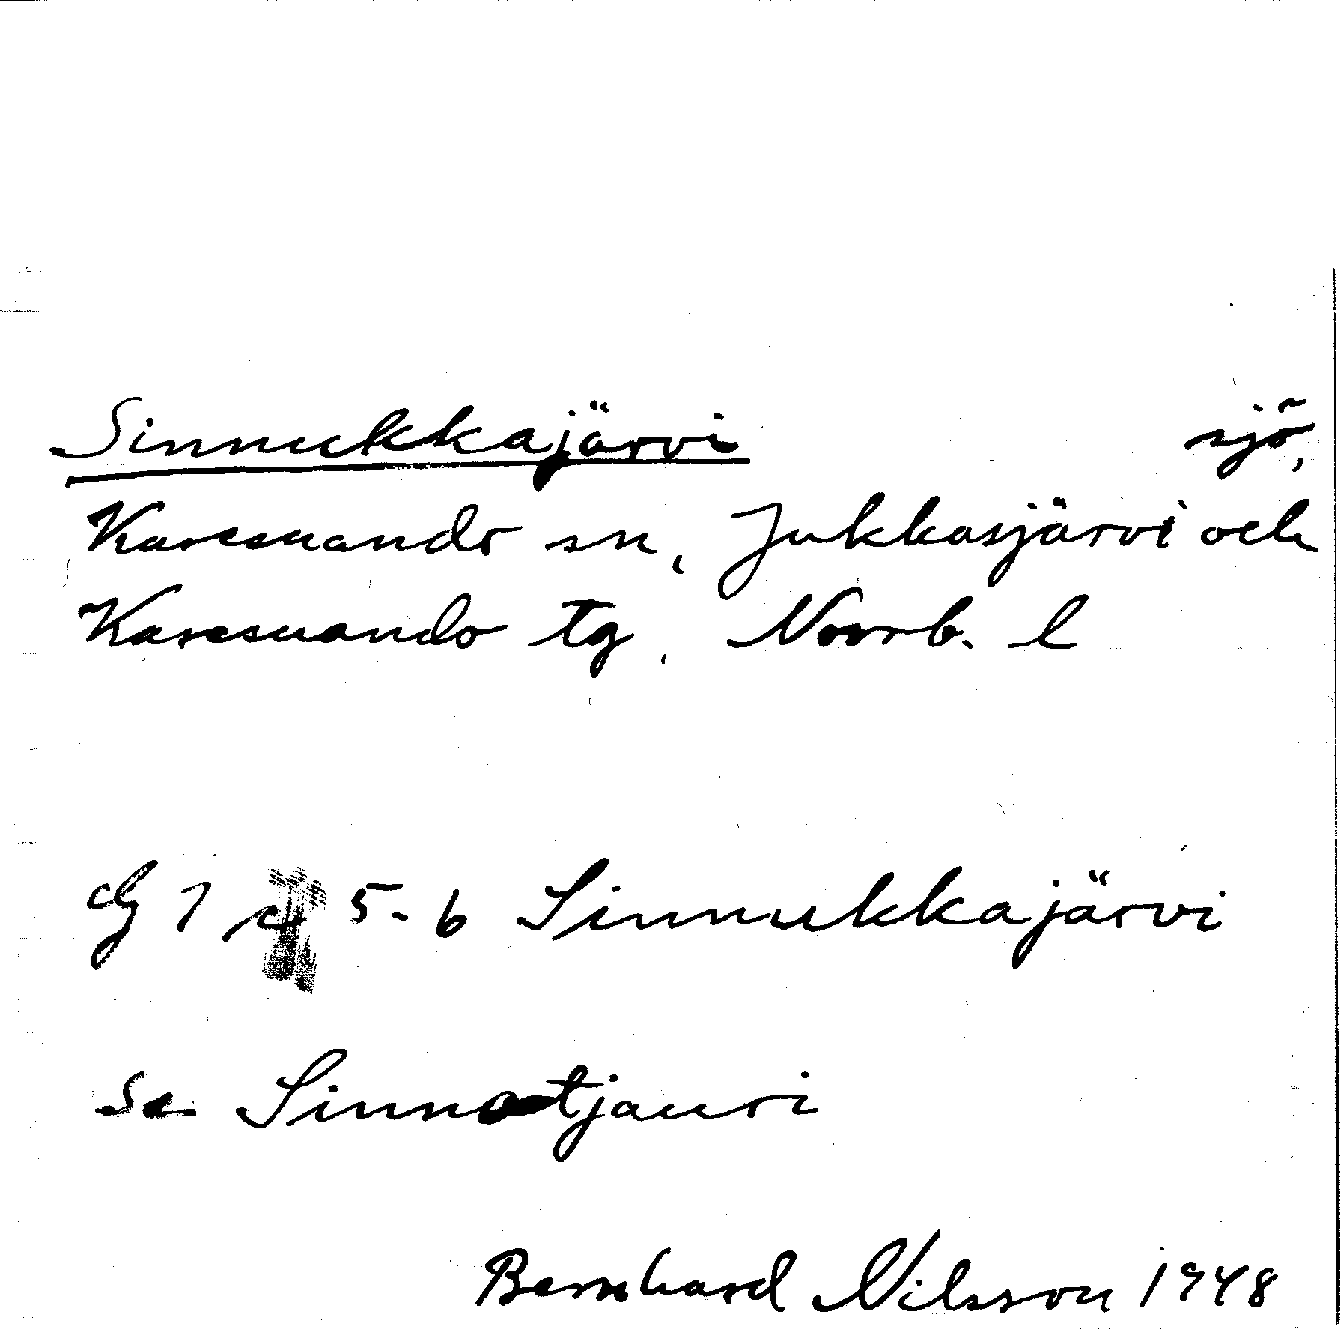 Sinnukkajärvi sjö,
Karesuando sn, Jukkasjärvi och
Karesuando tg, Norrb. l
5-6 Sinnukkajärvi
Se Sinnotjauri
Bernhard Nilsson 1948